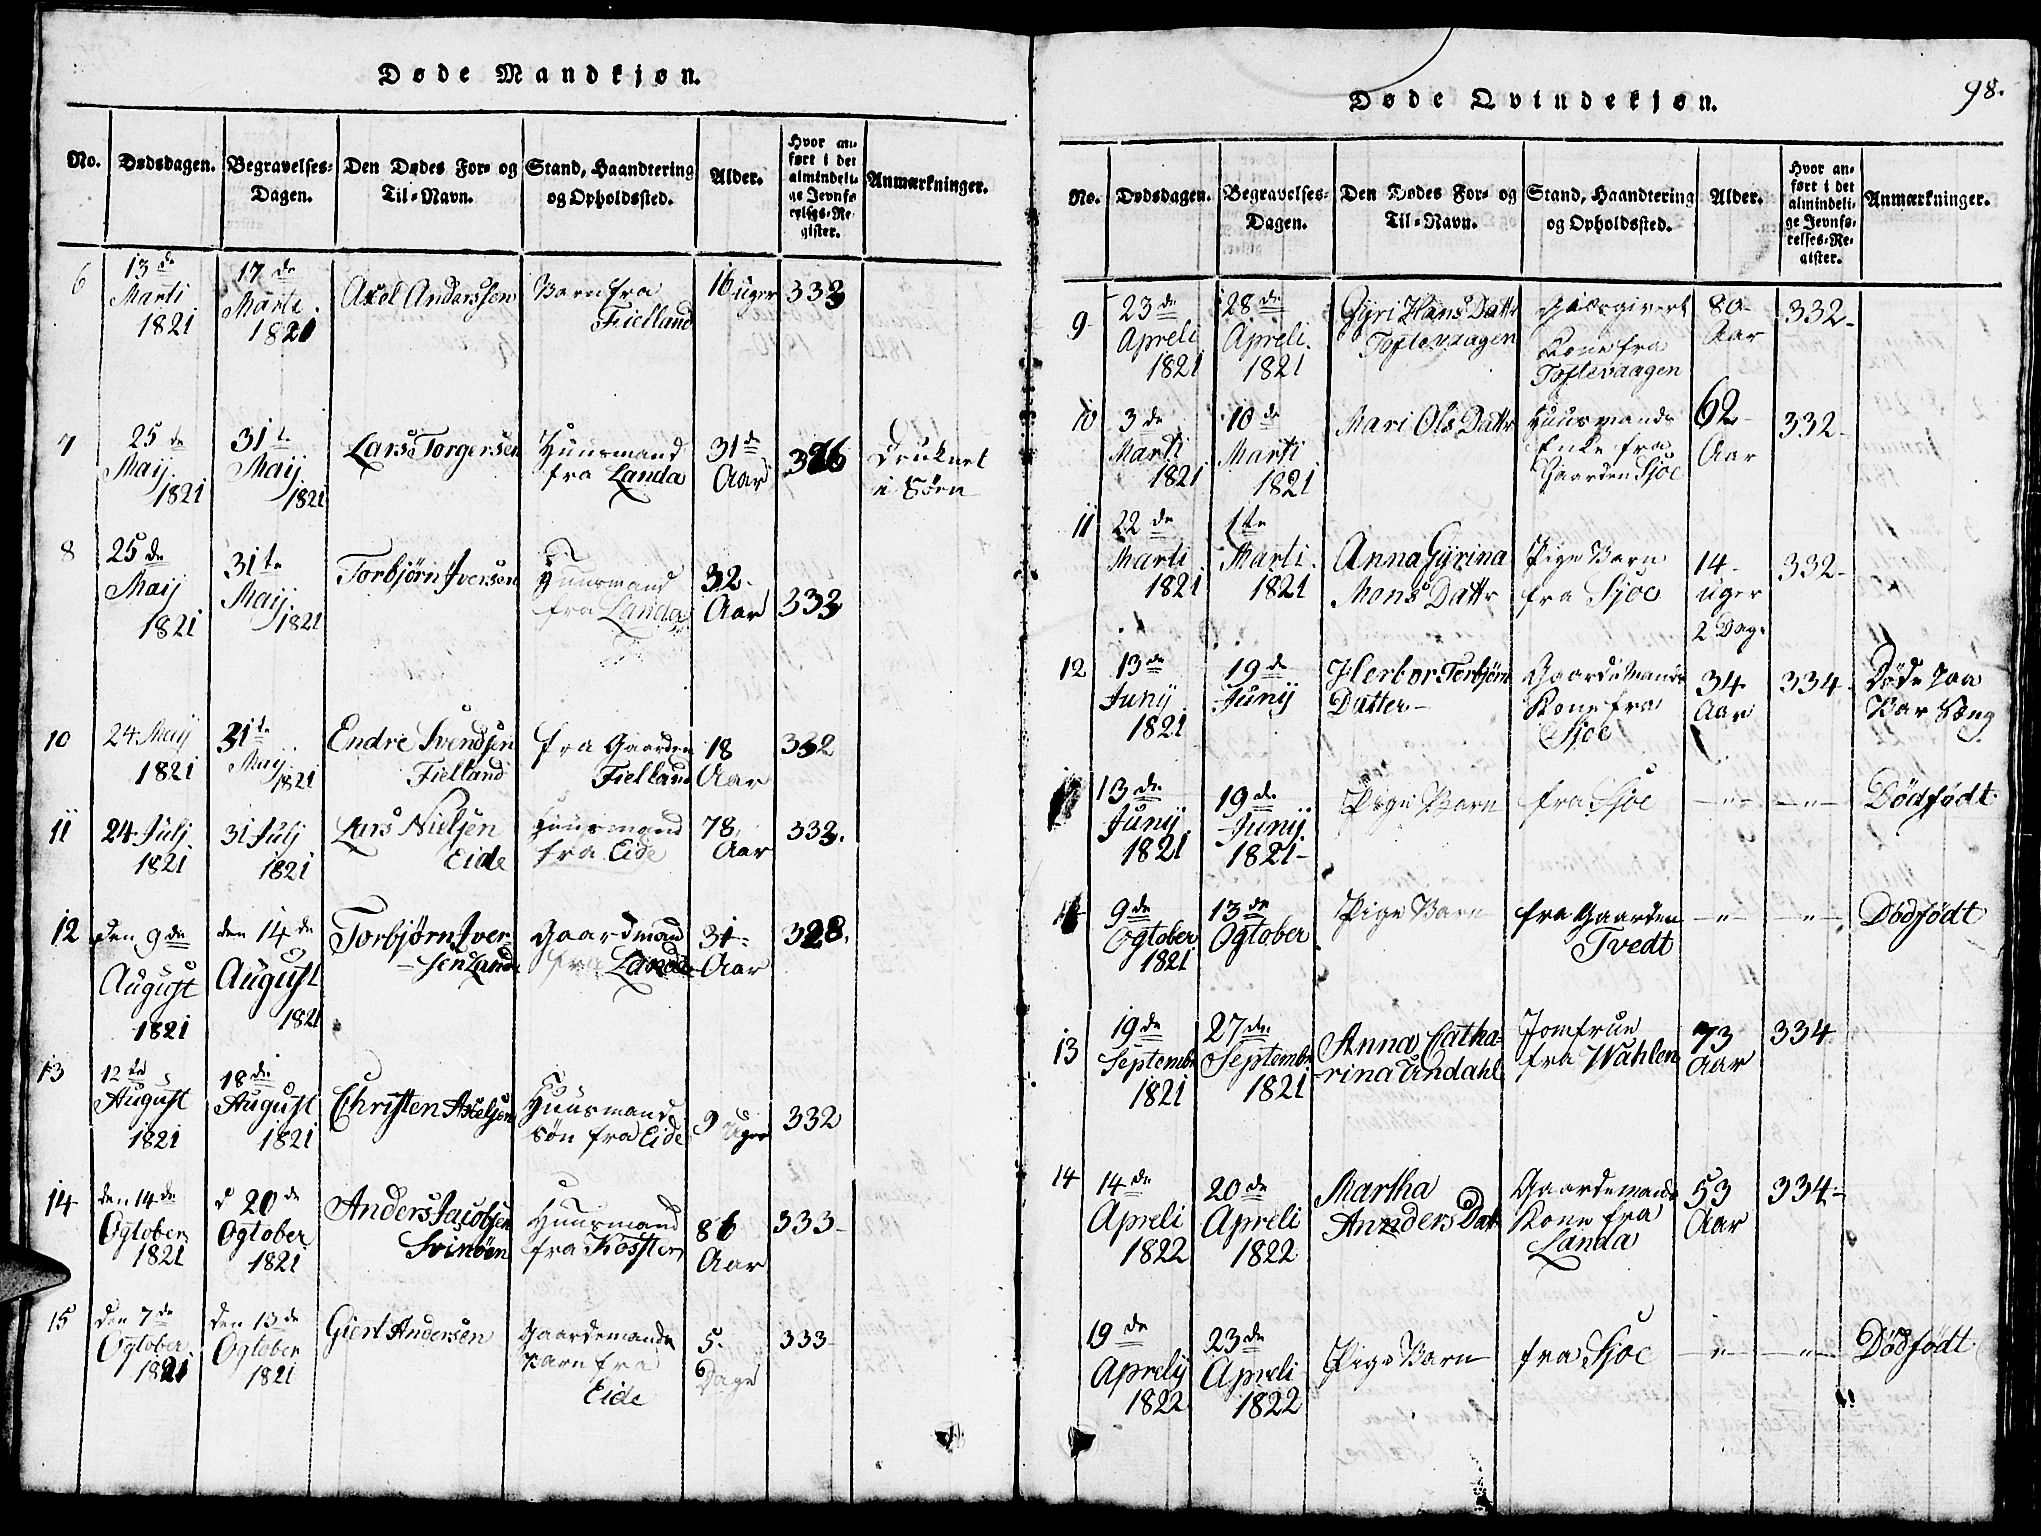 Døde Mandkjøn.
No. Dødsdagen. Begravelses-Dagen. Den Dødes For- og Til-Navn. Stand, Haandtering og Opholdssted. Alder. Hvor anført i det almindelige Jevnførelses-Register. Anmærkninger.
6 13de Marti 1821 17de Marti 1821 Axel Anderssen Barn fra Fielland 16 uger 333
7 25de Maij 1821 31te Maij 1821 Lars Torgersen Huusmand fra Landa 31de Aar 326 Druknet i Søen
8 25de Maij 1821 31te Maij 1821 Torbjørn Iversen Huusmand fra Landa 32 Aar 333
10 24 Maij 1821 31te Maij 1821 Endre Svendsen Fielland fra Gaarden Fielland 18 Aar 332
11 24 Julj 1821 31 Julj 1821 Lars Nielsen Eide Huusmand fra Eide 78 Aar 333.
12 den 9de August 1821 den 14de August 1821 Torbjørn Iversen Landa Gaardmand fra Landa 31 Aar 328.
13 12te August 1821 18de August 1821 Christen Axelsen Huusmands Søn fra Eide 9 Uger 332
14 den 14de Ogtober 1821 d 20de Ogtober 1821 Anders Jacobsen Svinøen Huusmand fra 86 Aar 333
15 den 7de Ogtober 1821 den 13de Ogtober 1821 Giert Andersen Gaardemands Barn fra Eide 5 Dage 333
98.
Døde Qvindekjøn.
No. Dødsdagen. Begravelses-Dagen. Den Dødes For- og Til-Navn. Stand, Haandtering og Opholdssted. Alder. Hvor anført i det almindelige Jevnførelses-Register. Anmærkninger.
9 23de Apreli 1821 28de Apreli 1821 Gyri Hans Dattr Toftevaagen Kone fra Toftevaagen 80 Aar 332
10 3de Marti 1821 10de Marti 1821 Mari Ols Dattr Huusmands Enke fra Gaarden Sjoe 62 Aar 332
11 22de Marti 1821 1te Marti 1821 Anna Gyrina Mons Dattr Pige Barn fra Sjoe 14 uger 2 Dage 332
12 13de Junij 1821 19de Junij Herbor Torbjørn Datter Gaardemands Kone fra Sjoe 34 Aar 334 Døde paa Bar Seng
13de Junij 1821 19de Junij 1821 Pige Barn fra Sjoe -"- -"- Dødfødt
9de Ogtober 1821 13de Ogtober Pige Barn fra Gaarden Tvedt -"- -"- Dødfødt
13 19de Septembr 1821 27de Septembr 1821 Anna Catharina Undahl Jomfrue fra Wahlen 73 Aar 334
14 14de Apreli 1822 20de Apreli 1822 Martha Annders Dat Gaardemands Kone fra Landa 53 Aar 334
19de Aprelij 1822 23de Apreli 1822 Pige Barn fra Sjoe -"- -"- Dødfødt